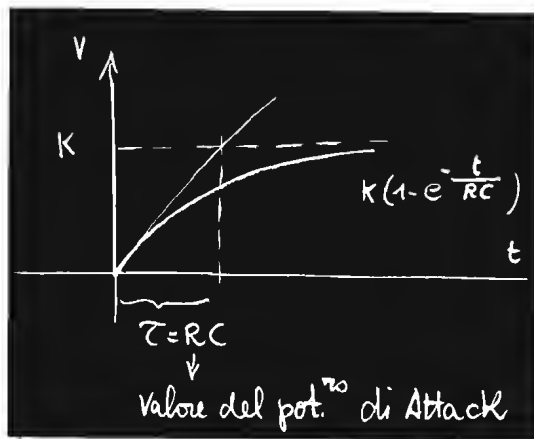 V
K
K(1-e^-t/RC)
t
τ=RC
Valore del pot.ro di Attack